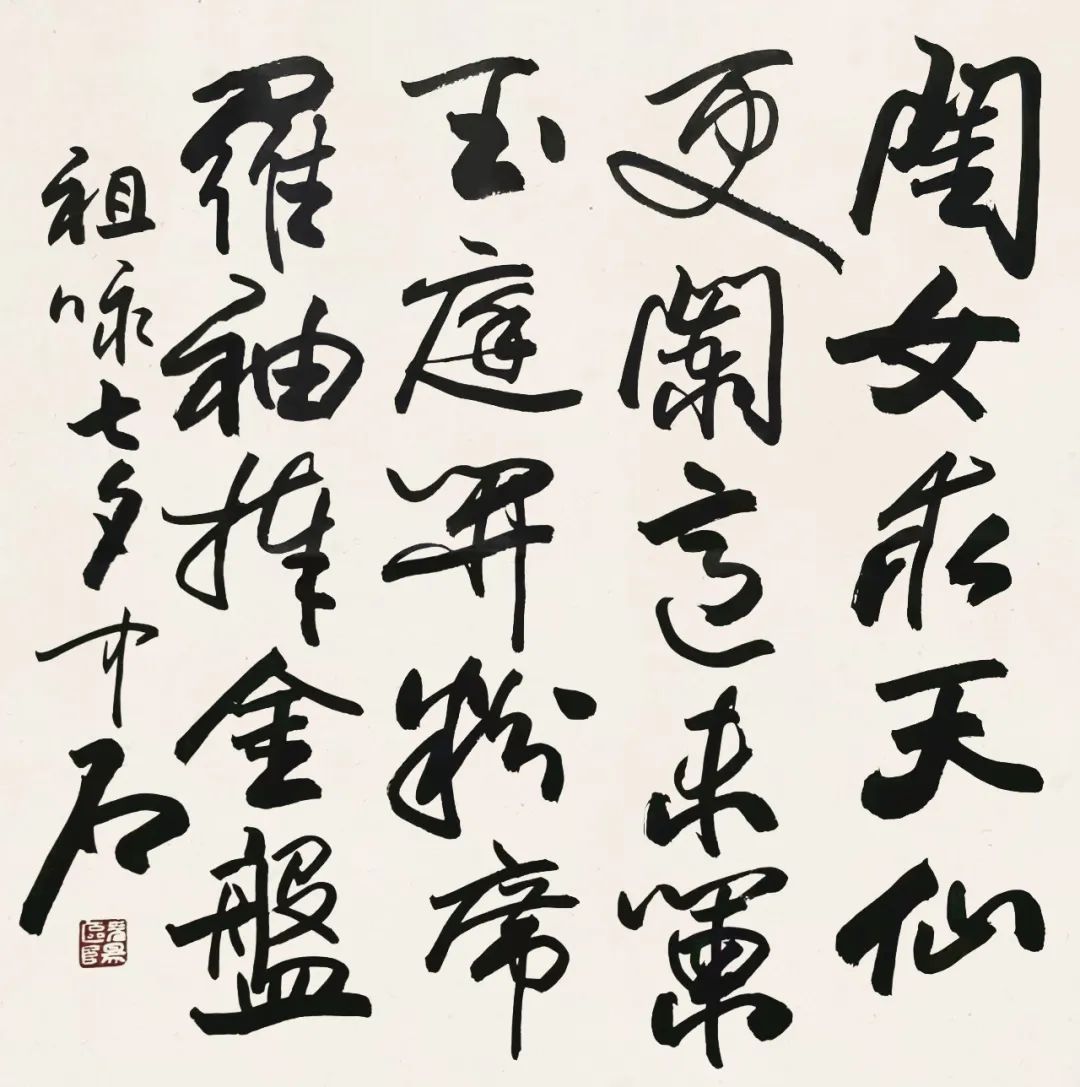 閨女求天仙
更闌意未闌
玉庭開粉席
羅袖捧金盤
祖咏七夕中石